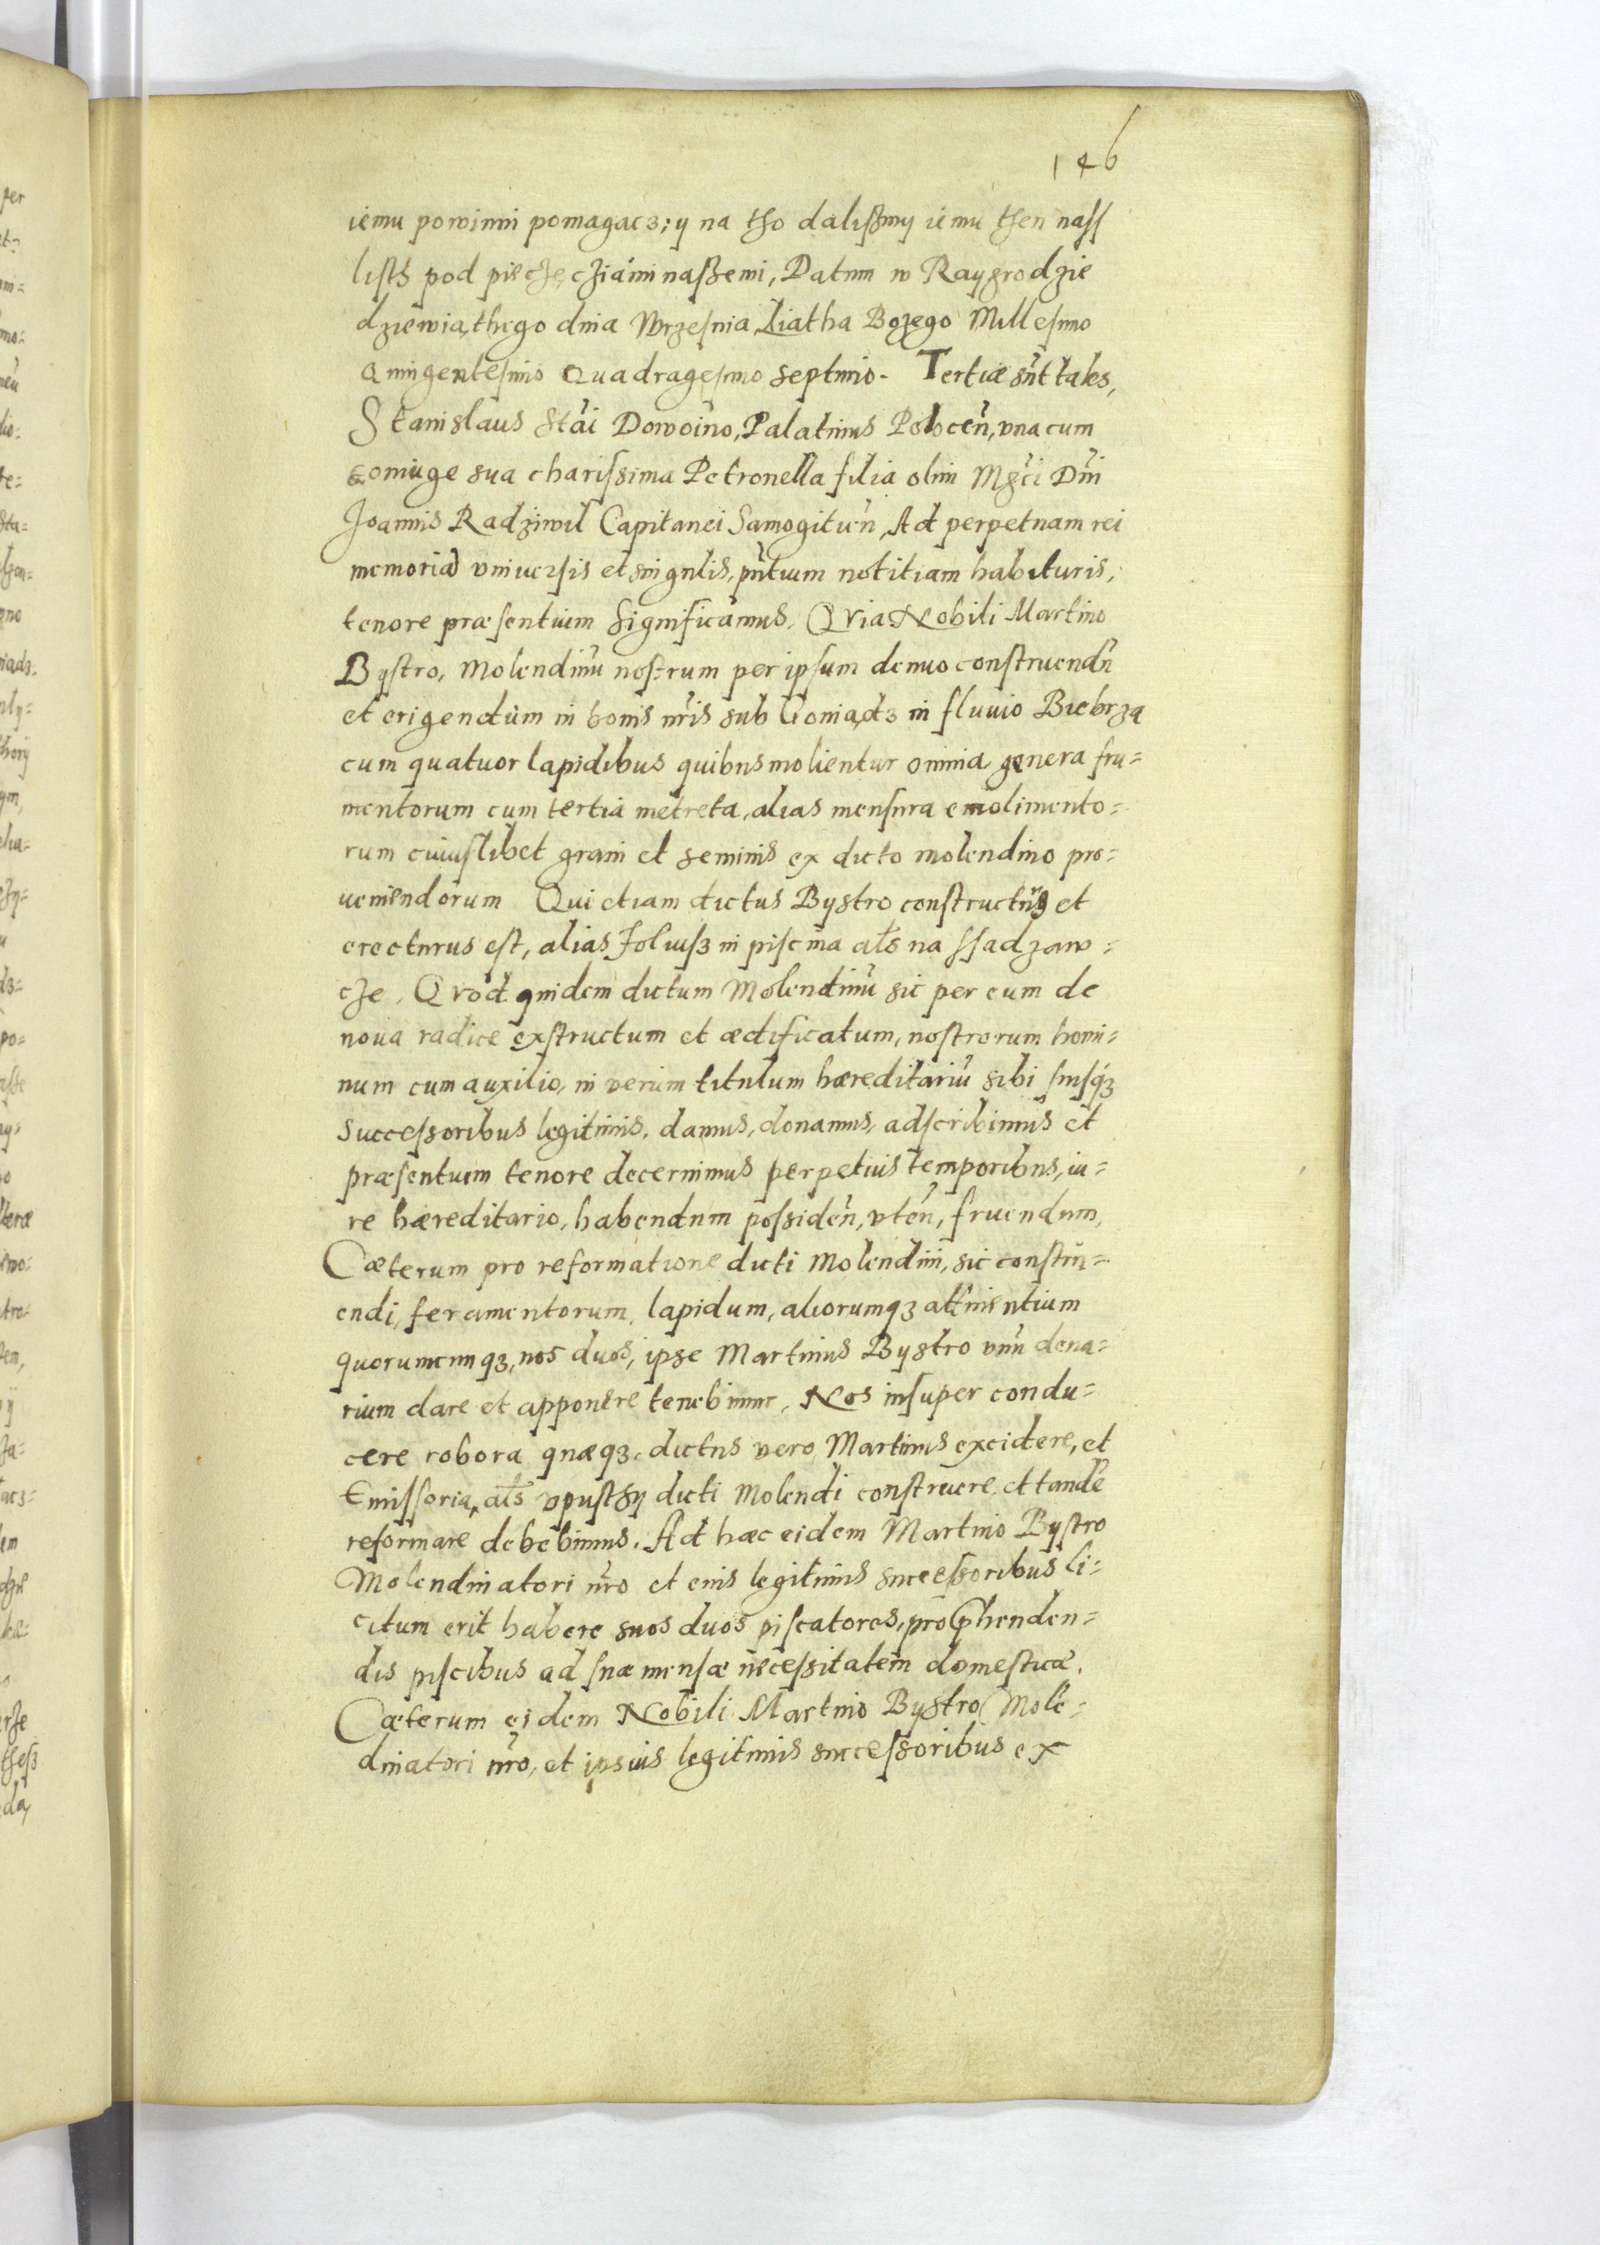 146
iemu powinni pomagacz; y na tho dalischmy iemu then nass
listh pod pieczęcziami naszemi, Datum w Raygrodzie
dziewiąthego dnia Wrzesnia, Liatha Bozego Millesimo
Quingentesimo Quadragesimo septimo. Tertiæ sūt tales,
Stanislaus Stāi Dowoino, Palatinus Polocēn, vna cum
coniuge sua charissima Petronella filia olim Mgci Dni
Joannis Radziwil Capitanei Samogitień, Ad perpetuam rei
memoriā vniuersis et singulis, pn̄tium notitiam habituris,
tenore præsentium significamus, Qvia Nobili Martino
Bystro, Molendinū nostrum per ipsum denuo construendū
et erigendum in bonis nr̄is sub Goniądz in fluuio Biebrza
cum quatuor lapidibus quibus molientur omnia genera fru=
mentorum cum tertia metreta, alias mensura emolimento=
rum cuiuslibet grani et seminis ex dicto molendino pro=
ueniendorum Qui etiam dictus Bystro constructurus et
erecturus est, alias foliusz in piscina al̄s na ssadzaw=
cze, Qvod quidem dictum Molendinū sic per eum de
noua radice exstructum et ædificatum, nostrorum homi=
num cum auxilio, in verum titulum hæreditariū sibi suisq3
successoribus legitimis, damus, donamus, adscribimus et
præsentium tenore decernimus perpetuis temporibus, iu=
re hæreditario, habendum possideñ, vteñ, fruendum,
Cæterum pro reformatione dicti Molendini, sic constru=
endi, feramentorum, lapidum, aliorumq3 attinentium
quorumcunq3, nos duos, ipse Martinus Bystro vnū dena=
rium dare et apponere tenebimur, Nos insuper condu=
cere robora quæq3, dictus vero Martinus excidere, et
Emissoria, al̄s vpusthy dicti Molendi construere et tandē
reformare debebimus. Ad hæc eidem Martino Bystro
Molendinatori nr̄o et eius legitimis successoribus li=
citum erit habere suos duos piscatores, pro p̄henden=
dis piscibus ad suæ mensæ necessitatem domesticā.
Cæterum eidem Nobili Martino Bystro Molē=
dinatori nr̄o, et ipsius legitimis successoribus ex